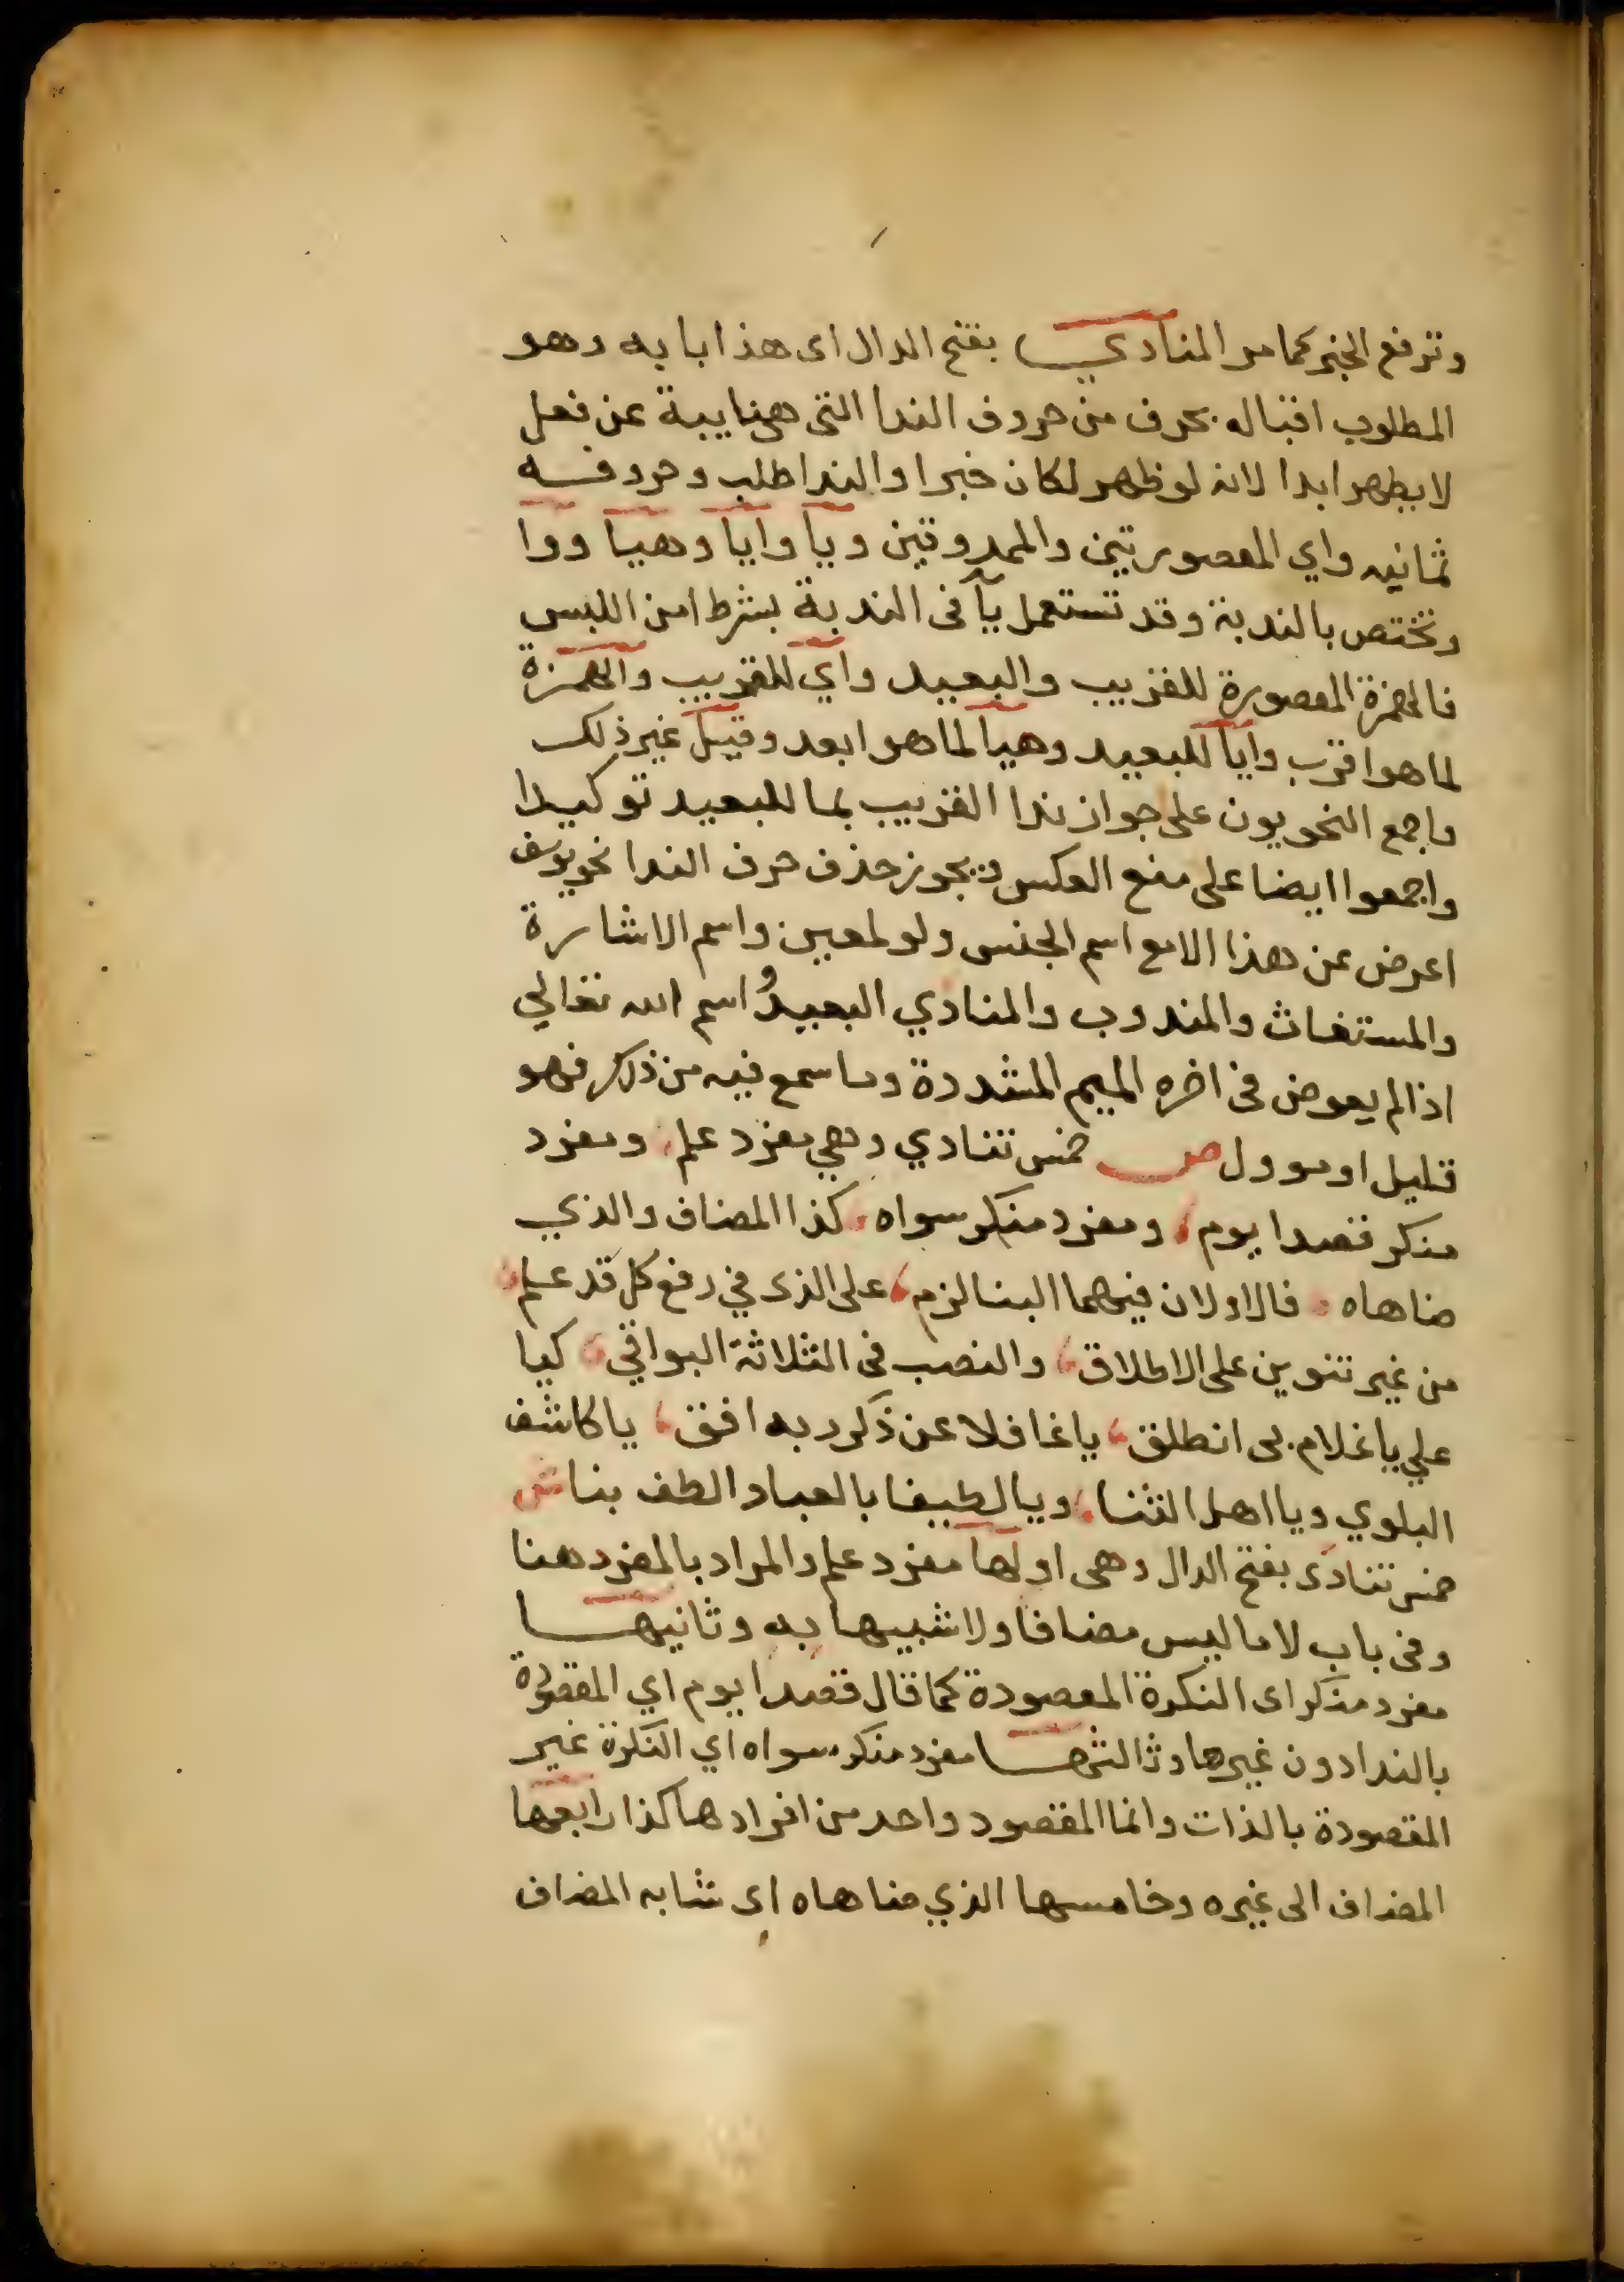 وترفع الخبر كما مر المنادي بفتح الدال اى هذا بابه وهو
المطلوب اقباله بحرف من حروف الندا التى هي نايبة عن فعل
لا يظهر ابدا لانه لو ظهر لكان خبرا والندا طلب وحروفه
ثمانيه واي المقصورتين والممدودتين ويا وايا وهيا ووا
وتختص بالندبة وقد تستعمل يا فى الندبة بشرط امن اللبس
فالهمزة المقصورة للقريب والبعيد واي للقريب والهمزة
لما هو اقرب وايا للبعيد وهيا لما هو ابعد وقيل غير ذلك
واجمع النحويون على جواز ندا القريب بما للبعيد توكيدا
واجمعوا ايضا على منع العكس ويجوز حذف حرف الندا نحو يوسف
اعرض عن هذا الا مع اسم الجنس ولو لمعين واسم الاشارة
والمستغاث والمندوب والمنادي البعيد و اسم الله تعالي
اذا لم يعوض فى اخره الميم المشددة وما سمع فيه من ذلك فهو
قليل او موول ص خمس تنادي وهي مفرد علم ومفرد
منكر قصدا يوم ومفرد منكر سواه كذا المضاف والذي
ضاهاه فالاولان فيهما البنا لزم على الذى في رفع كل قد علم
من غير تنوين على الاطلاق والنصب فى الثلاثة البواقي كيا
علي يا غلام بى انطلق يا غافلا عن ذكر ربه افق يا كاشف
البلوي ويا اهل الثنا ويا لطيفا بالعباد الطف بنا ش
خمس تنادى بفتح الدال وهى اولها مفرد علم والمراد بالمفرد هنا
وفى باب لا ما ليس مضافا ولا شبيها به وثانيها
مفرد منكر اى النكرة المقصودة كما قال قصدا يوم اي المقصودة
بالندا دون غيرها وثالثها مفرد منكر سواه اي النكرة غير
المقصودة بالذات وانما المقصود واحد من افرادها كذا رابعها
المضاف الى غيره وخامسها الذي ضاهاه اى شابه المضاف